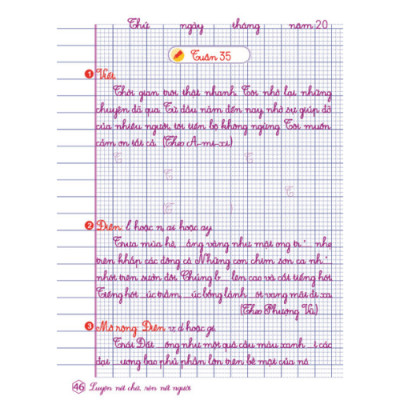 Thứ ngày tháng năm 20
Tuần 35
1 Viết
Thời gian trôi thật nhanh. Tôi nhớ lại những
chuyện đã qua. Từ đầu năm đến nay nhờ sự giúp đỡ
của nhiều người, tôi tiến bộ không ngừng. Tôi muốn
cảm ơn tất cả. (Theo A-mi-xi)
T T
T T
T
2 Điền: l hoặc n, ai hoặc ay
Trưa mùa hè, ...ắng vàng như mật ong tr... nhẹ
trên khắp các đồng cỏ. Những con chim sơn ca nh...
nhót trên sườn đồi. Chúng b... lên cao và cất tiếng hót.
Tiếng hót ...úc trầm, ...úc bổng, lảnh ...ót vang mãi đi xa.
(Theo Phượng Vũ)
3 Mở rộng: Điền r, d hoặc gi
Trái Đất ...ống như một quả cầu màu xanh ...ì các
đại ...ương bao phủ phần lớn trên bề mặt của nó.
46 Luyện nét chữ, rèn nết người